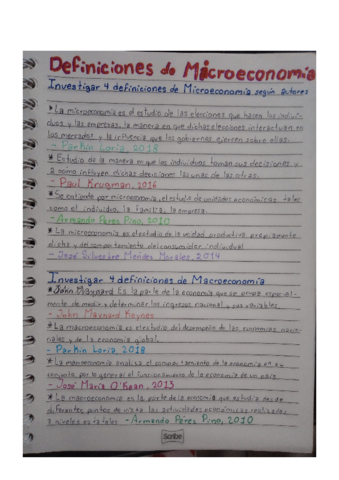 Definiciones de Microeconomía
Investigar 4 definiciones de Microeconomía según autores
* La microeconomía es el estudio de las elecciones que hacen los individ-
uos y las empresas, la manera en que dichas elecciones interactuan en
los mercados y la influencia que los gobiernos ejercen sobre ellas.
- Parkin Loria, 2018
* Estudio de la manera en que los individuos toman sus decisiones y
a como influyen dichas decisiones las unas de las otras.
- Paul Krugman, 2016
* Se entiende por microeconomía, el estudio de unidades económicas tales
como el individuo, la familia, la empresa.
- Armando Pérez Pino, 2010
* La microeconomía es el estudio de la unidad productiva propiamente
dicha y del comportamiento del consumidor individual
- José Silvestre Méndez Morales, 2014
Investigar 4 definiciones de Macroeconomía
* John Maynard Es la parte de la economía que se
mente de medir y determinar los ingresos nacional y sus variables
- John Maynard Keynes
* La macroeconomía es el estudio del desempeño de las economías nacio-
nales y de la economía global.
- Parkin Loria, 2018
* La macroeconomía analiza el comportamiento de la economía en su
conjunto, por lo general el funcionamiento de la economía de un país
- José María O'Kean, 2013
* La macroeconomía es la parte de la economía que estudia desde
diferentes puntos de vista las actividades económicas realizadas
a niveles estatales - Armando Pérez Pino, 2010
Scribe